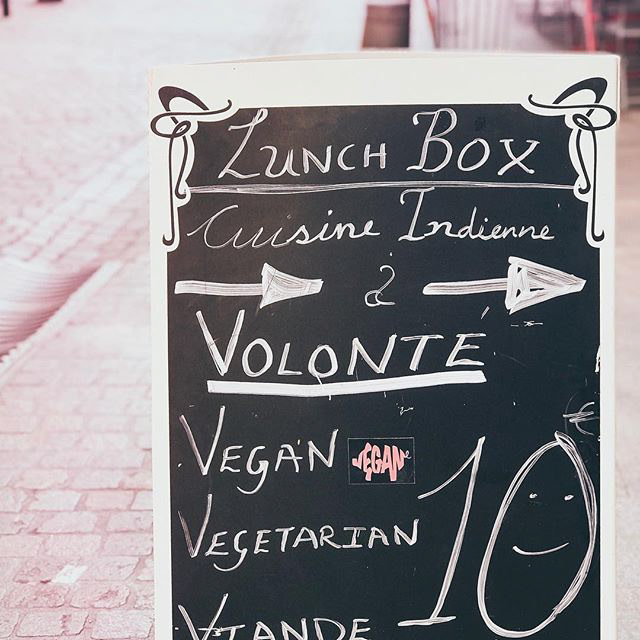 LUNCH BOX
Cuisine Indienne
à
VOLONTE
VEGAN VEGAN
€
VEGETARIAN 10
VIANDE